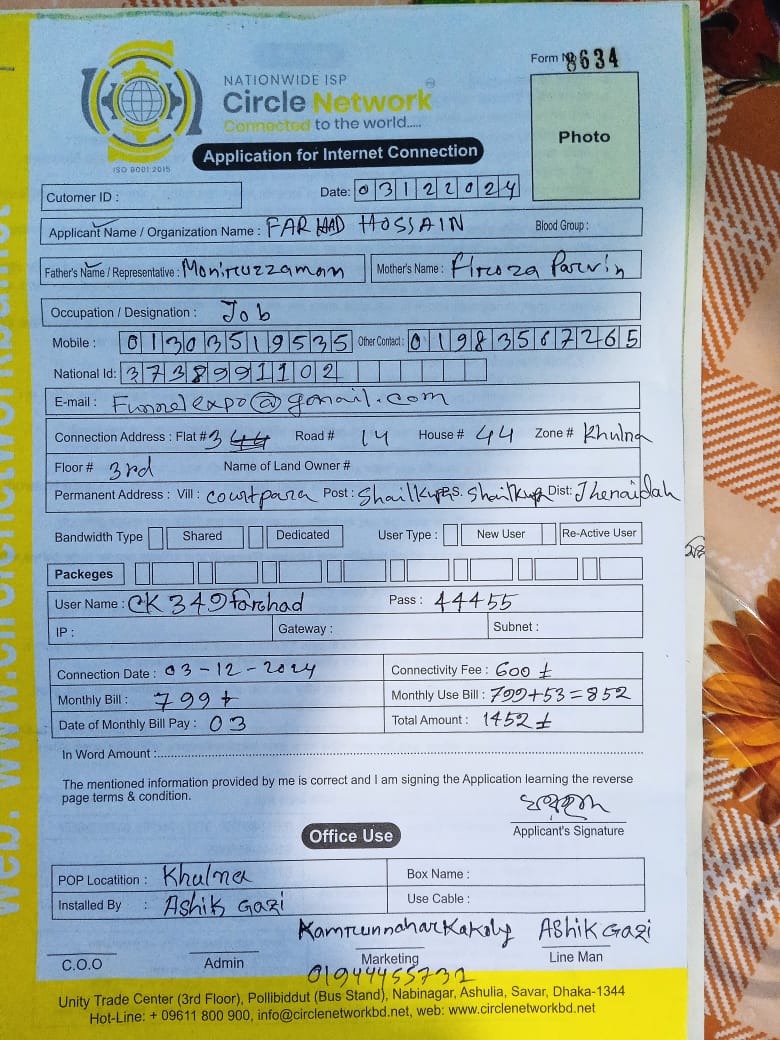 Form No 8634
NATIONWIDE ISP
Circle Network
Connected to the world.....
ISO 9001:2015
Photo
Application for Internet Connection
Cutomer ID :
Date: 03122024
Applicant Name / Organization Name : FARHAD HOSSAIN Blood Group :
Father's Name / Representative : Moniruzzaman Mother's Name : Firoza Parvin
Occupation / Designation : Job
Mobile : 01303519535 Other Contact : 01983567265
National Id: 3738991102
E-mail : Funnelexpo@gmail.com
Connection Address : Flat # 3 44 Road # 14 House # 44 Zone # Khulna
Floor # 3rd Name of Land Owner #
Permanent Address : Vill : courtpara Post : Shailkupa P.S. Shailkupa Dist: Jhenaidah
Bandwidth Type Shared Dedicated User Type : New User Re-Active User
Packeges
User Name : CK349farhad Pass : 44455
IP : Gateway : Subnet :
Connection Date : 03-12-2024 Connectivity Fee : 600 t
Monthly Bill : 799 t Monthly Use Bill : 799+53=852
Date of Monthly Bill Pay : 03 Total Amount : 1452 t
In Word Amount :
The mentioned information provided by me is correct and I am signing the Application learning the reverse
page terms & condition.
Applicant's Signature
Office Use
POP Locatition : Khulna Box Name :
Installed By : Ashik Gazi Use Cable :
Kamrunnahar Kakoly Ashik Gazi
C.O.O Admin Marketing Line Man
01944455732
Unity Trade Center (3rd Floor), Pollibiddut (Bus Stand), Nabinagar, Ashulia, Savar, Dhaka-1344
Hot-Line: + 09611 800 900, info@circlenetworkbd.net, web: www.circlenetworkbd.net